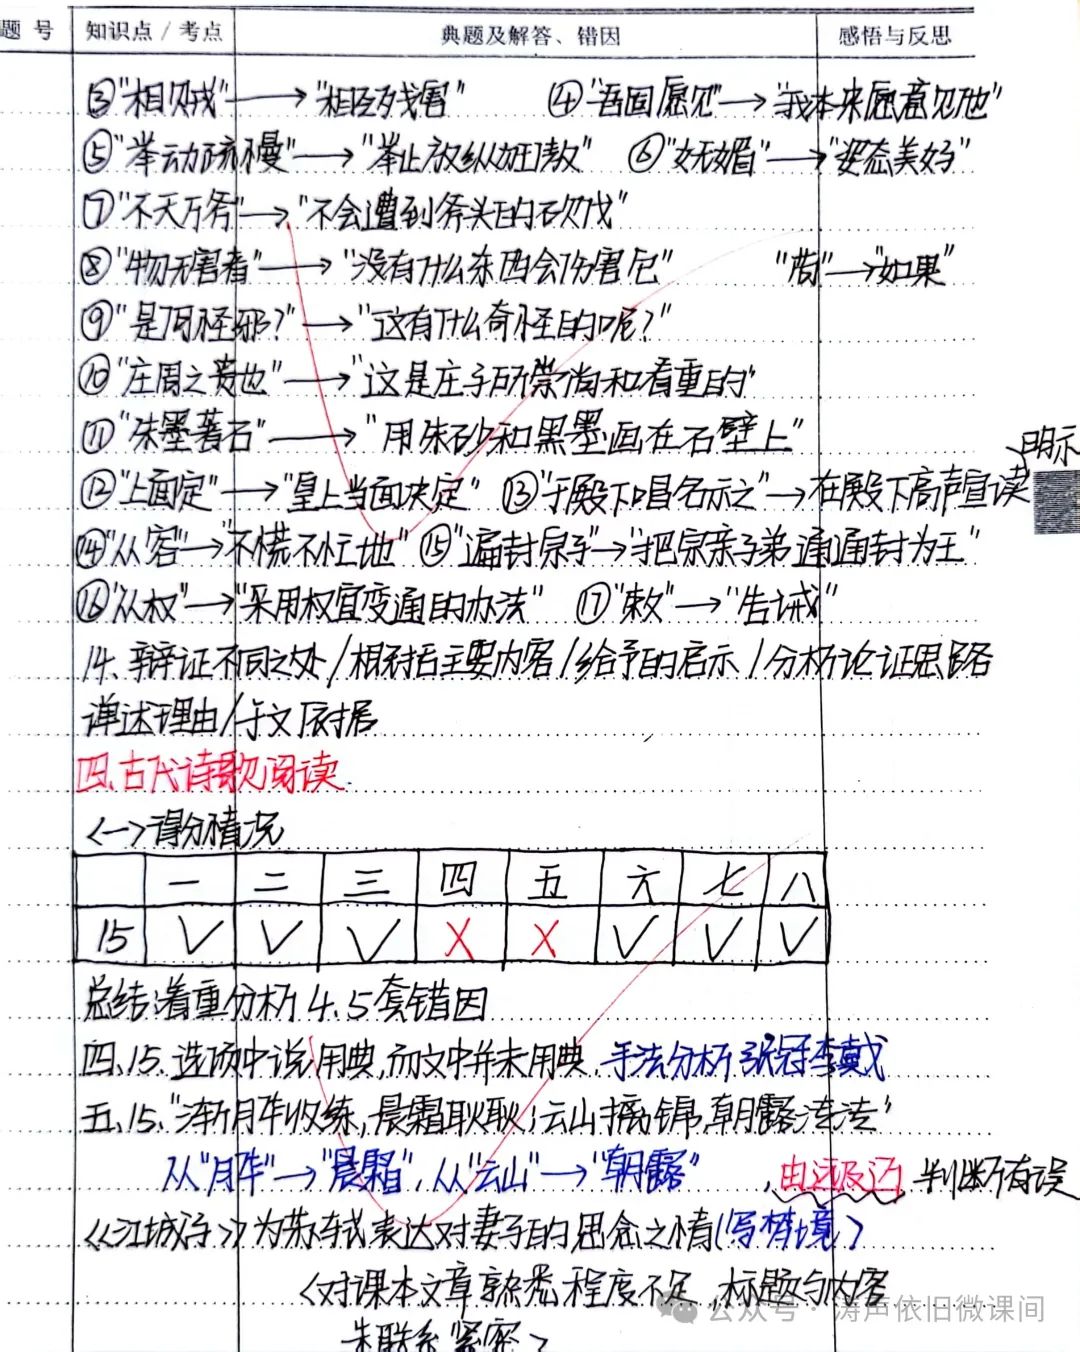 题 号 知识点/考点 典题及解答、错因 感悟与反思
③"相贼"→"相互残害" ④"吾固愿见"→"我本来愿意见他"
⑤"举动疏慢"→"举止放纵加傲" ⑥"妩媚"→"姿态美好"
⑦"不夭斤斧"→"不会遭到斧头的砍伐"
⑧"物无害者"→"没有什么东西会伤害它" "苟"→"如果"
⑨"是何怪邪?"→"这有什么奇怪的呢?"
⑩"庄周之贵也"→"这是庄子所崇尚和看重的"
⑪"朱墨著石"→"用朱砂和黑墨画在石壁上"
明示
⑫"上面定"→"皇上当面决定" ⑬"于殿下唱名示之"→在殿下高声宣读
⑭"从容"→"不慌不忙地" ⑮"遍封宗子"→"把宗亲子弟通通封为王"
⑯"从权"→"采用权宜变通的办法" ⑰"敕"→"告诫"
14. 辩证不同之处/相对后主要内容/给予的启示/分析论证思路
详述理由/于文依据
四.古代诗歌阅读.
<一>得分情况
一 二 三 四 五 六 七 八
15 ✓ ✓ ✓ X X ✓ ✓ ✓
总结:着重分析4.5套错因
四.15.选项中说用典,而文中并未用典,手法分析张冠李戴
五.15."渐月华收练,晨霜耿耿;云山摛锦,朝露漙漙"
从"月华"→"晨霜",从"云山"→"朝露",由远及近,判断有误
《江城子》为苏轼表达对妻子的思念之情(写梦境)
<对课本文章熟悉程度不足,标题与内容
未联系紧密>
公众号·涛声依旧微课间